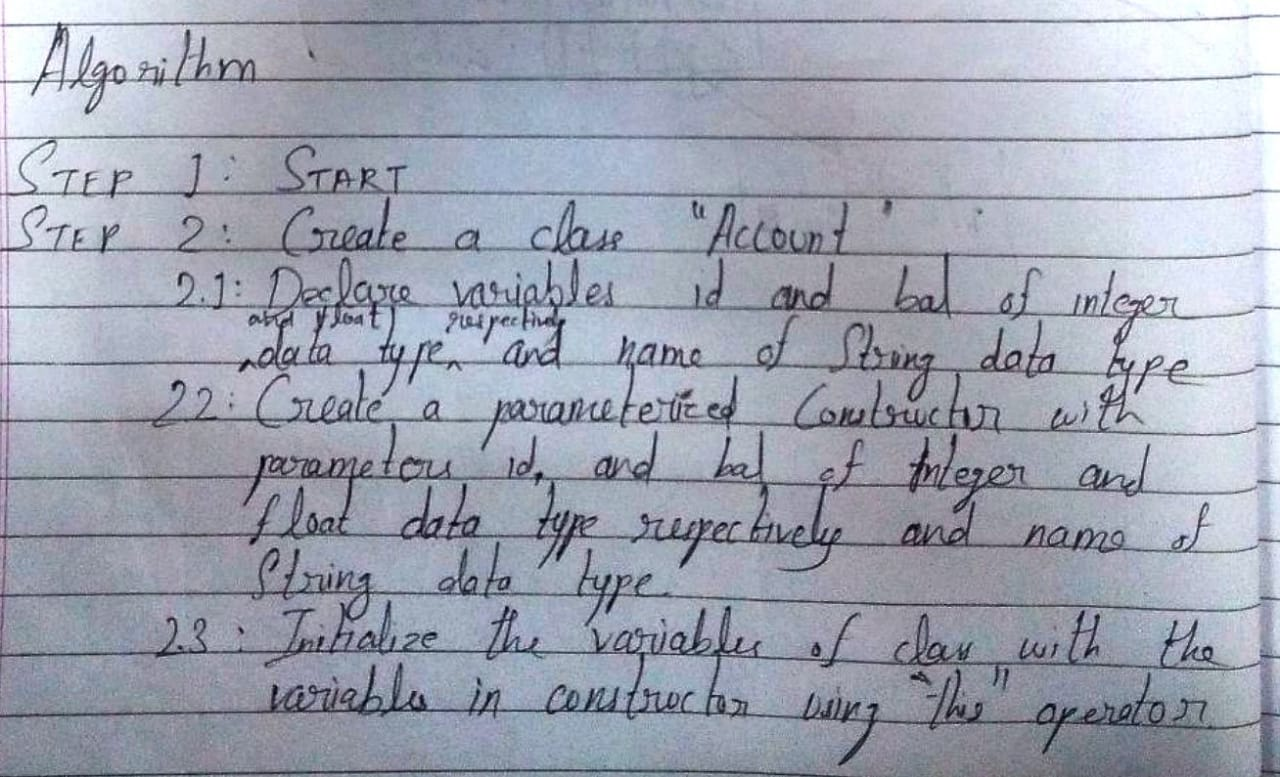 Algorithm
STEP 1: START
STEP 2: Create a class "Account"
2.1: Declare variables id and bal of integer
and float) respectively
data type, and name of String data type
22: Create a parameterized Constructor with
parameters id, and bal of Integer and
float data type respectively and name of
String data type.
2.3: Initialize the variables of class with the
variables in constructor using "this" operator